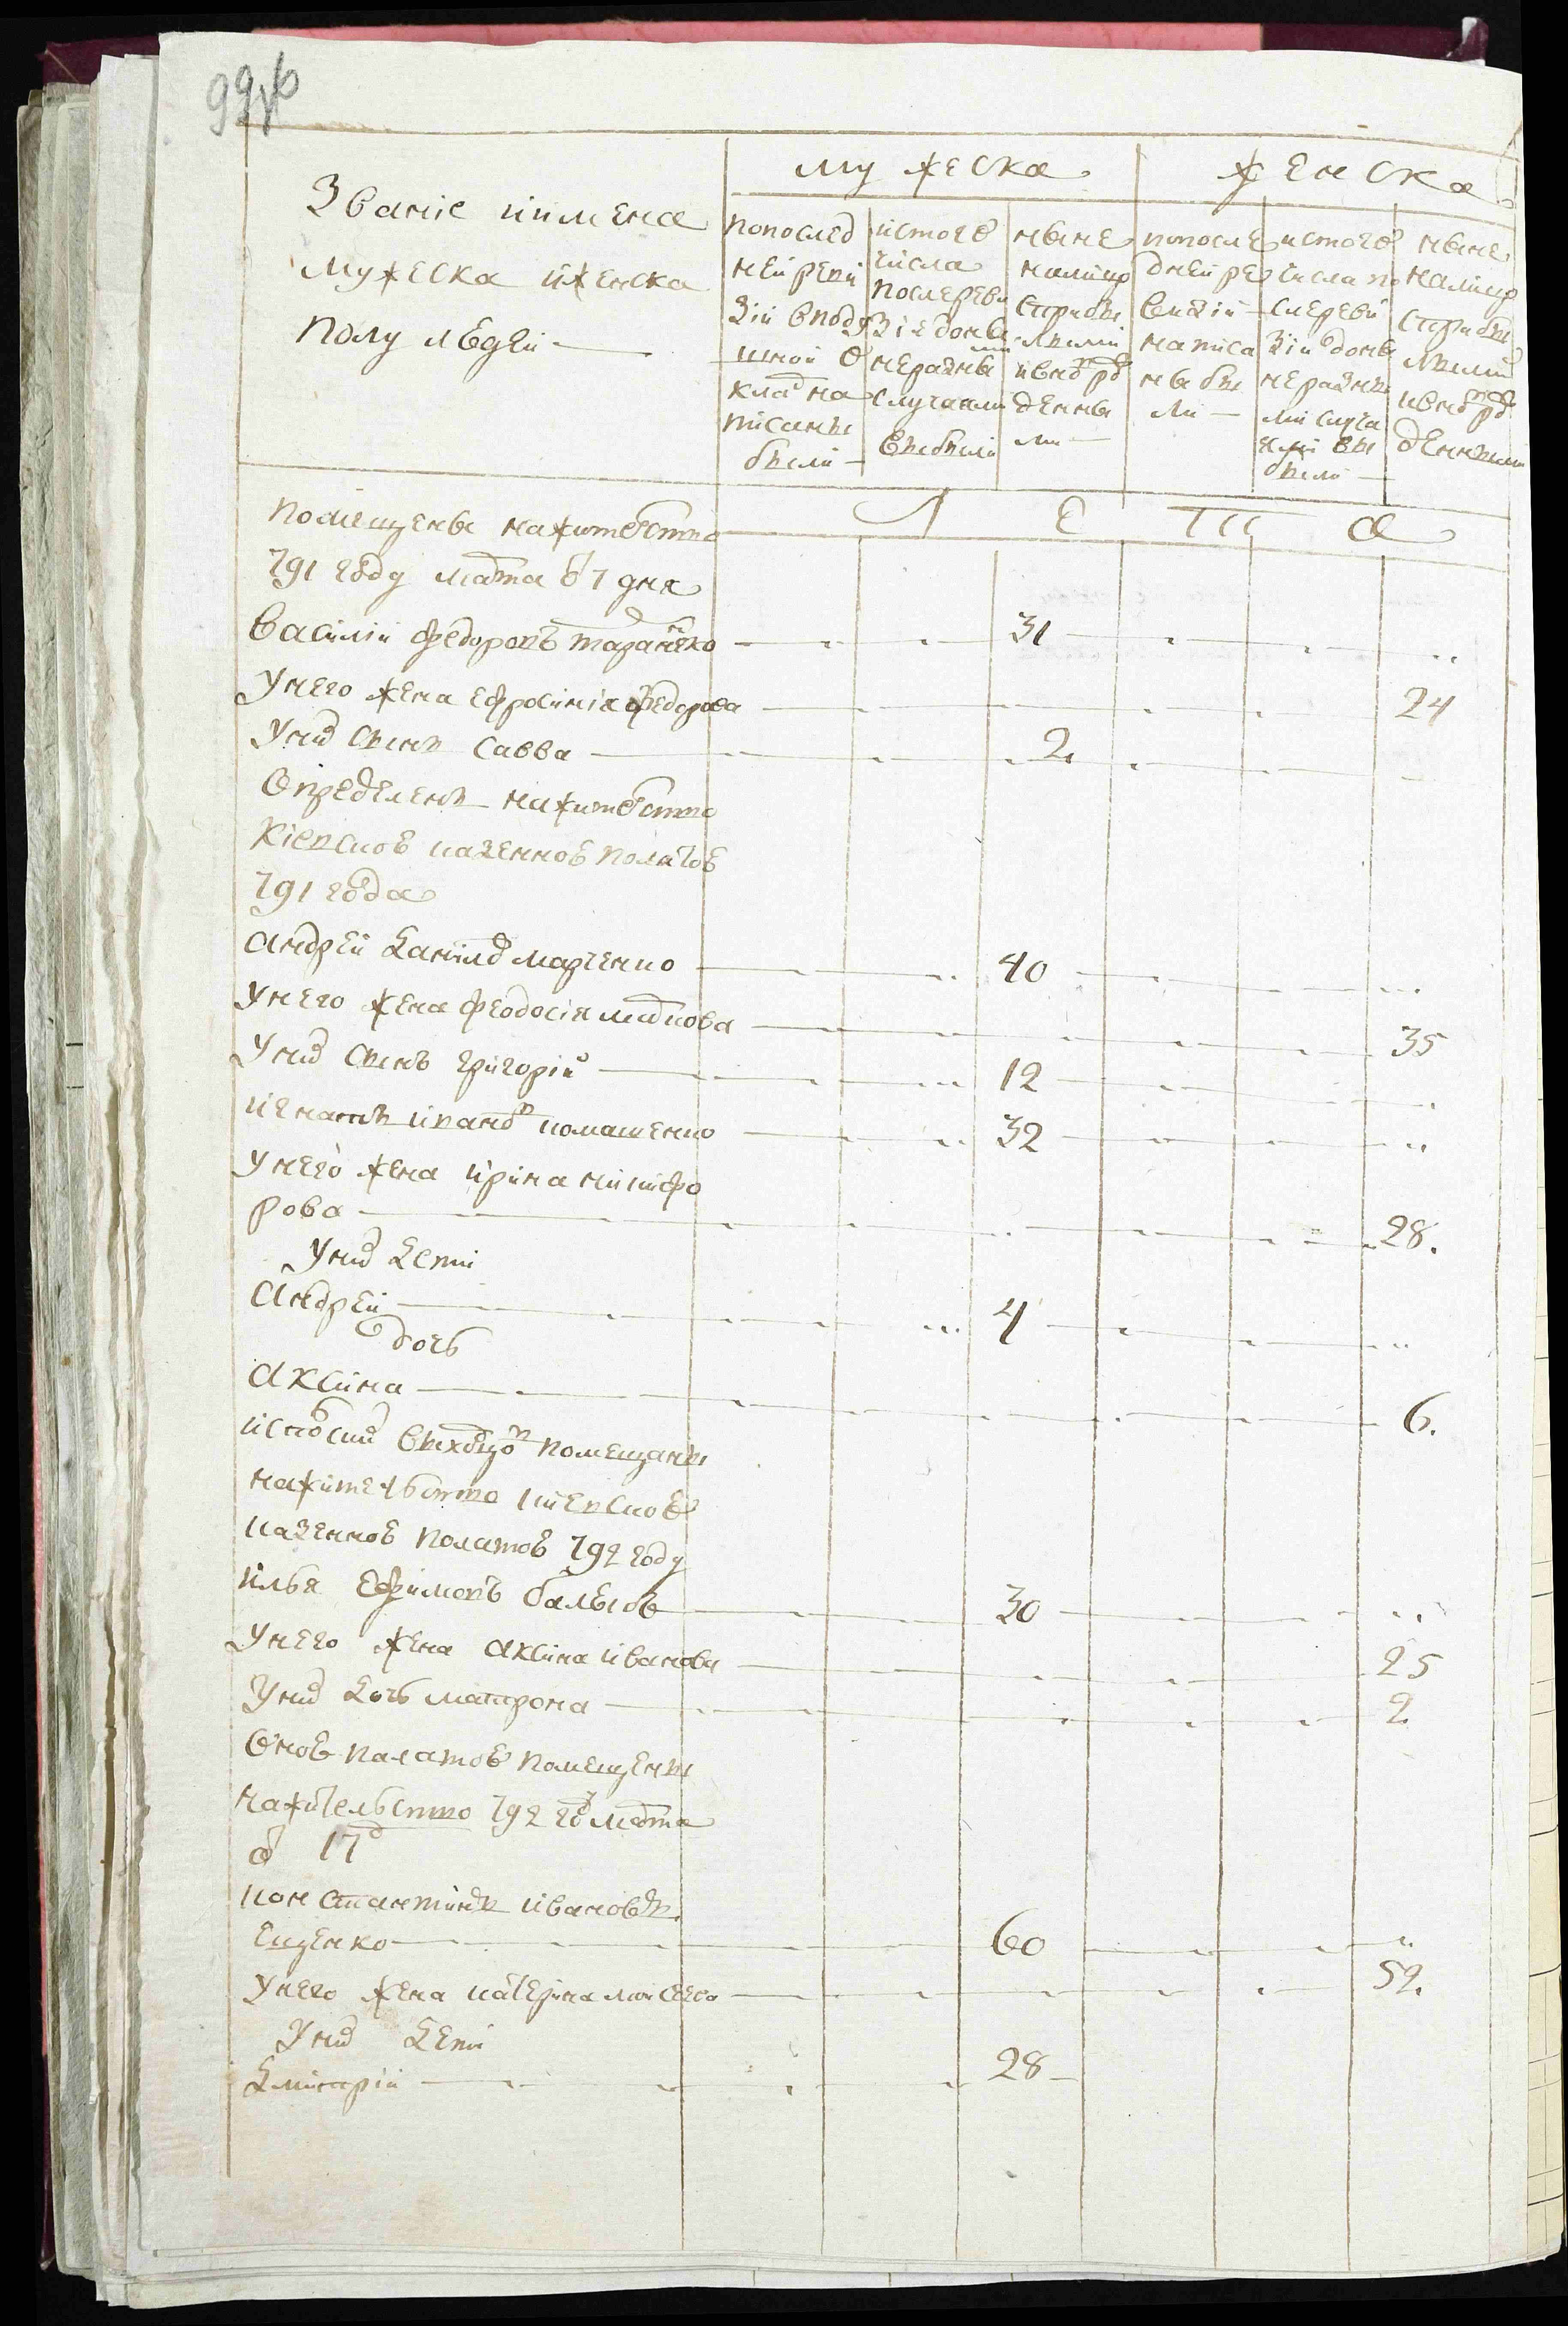 99
Званіе иимена
мужеска иженска
полу людей
мужеска
женска
попослед
ней реви
зіи вподу
шной о
клад на
писаны
были
истого
числа
послереви
зіи донн
неразны
ми
случаями
выбыли
ныне
налицо
сприбы
лыми
ивнов рож
денны
ми
попосле
дней ре
визіи
написа
ны бы
ли
истого
числа по
слереви
зіи донн
неразны
ми случа
ями вы
были
ныне
налицо
сприбы
лыми
ивнов рож
денными
Л е т а
помещены нажителство
791 году марта 7 дня
Василіи Федоровъ таран
31
Унего жена Ефросиніа Федорова
24
Уних сынъ Савва
2
Определены нажителство
Кіевскою казенною полатою
791 года
Андрей Данилов Марченко
40
Унего жена Феодосіа Маркова
35
Уних сынъ Григоріи
12
Игнатъ Иванов Ломашенко
32
Унего жена Ирина Никифо
рова
28.
Уних дети
Андрей
4
дочь
Аксина
6.
Испосих выходцов помещены
нажителство Киевскою
казенною полатою 792 году
Илья Ефимовъ
30
Унего жена Аксина Иванова
25
Уних дочь Матрона
2
Оною палатою помещены
нажителство 792 год марта
17
Константинъ Ивановъ
Ещенко
60
Унего жена Катерина Моисеева
52.
Уних дети
Дмитріи
28